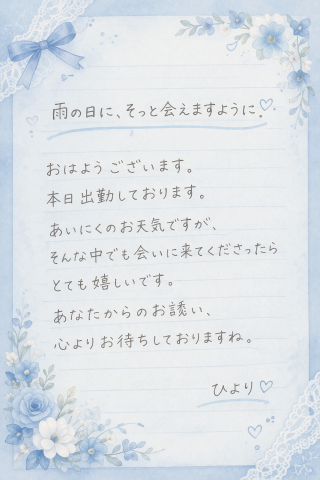 雨の日に、そっと会えますように。♡
おはようございます。
本日出勤しております。
あいにくのお天気ですが、
そんな中でも会いに来てくださったら
とても嬉しいです。
あなたからのお誘い、
心よりお待ちしておりますね。
ひより♡